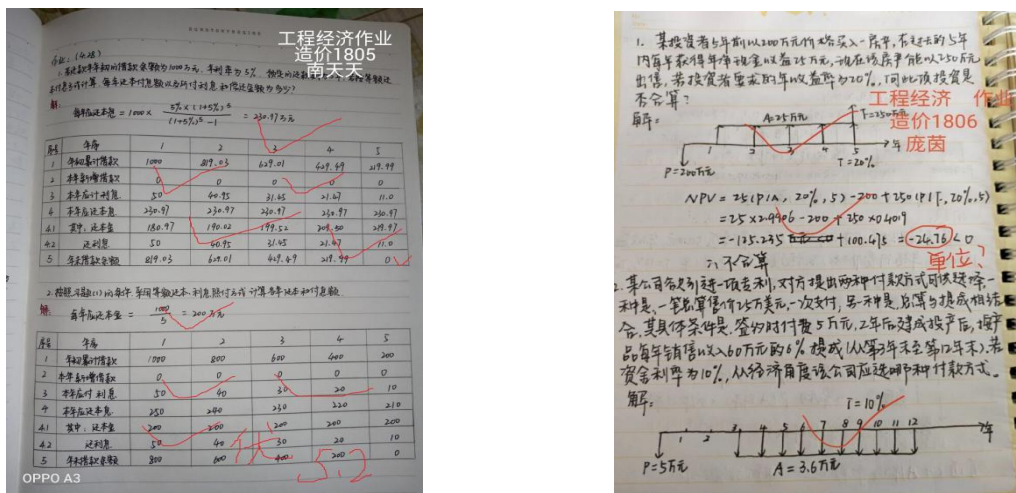 工程经济作业
造价1805
南天天
作业:(4.28)
1. 若还款本年初的借款余额为1000万元,年利率为5%,
本付息方式计算,每年还本付息额以及所付利息和偿还金额为多少?
解:
每年应还本息=1000× 5%×(1+5%)^5 / (1+5%)^5-1 = 230.97万元
序号 年序 1 2 3 4 5
1 年初累计借款 1000 819.03 629.01 429.49 219.99
2 本年新增借款 0 0 0 0 0
3 本年应计利息 50 40.95 31.45 21.47 11.0
4 本年应还本息 230.97 230.97 230.97 230.97 230.97
4.1 其中:还本金 180.97 190.02 199.52 209.50 219.97
4.2 还利息 50 40.95 31.45 21.47 11.0
5 年末借款余额 819.03 629.01 429.49 219.99 0
2. 按照习题(1)的条件,采用等额还本、利息照付方式计算各年还本和付息额.
解: 每年应还本金 = 1000/5 = 200万元
序号 年序 1 2 3 4 5
1 年初累计借款 1000 800 600 400 200
2 本年新增借款 0 0 0 0 0
3 本年应计利息 50 40 30 20 10
4 本年应还本息 250 240 230 220 210
4.1 其中:还本金 200 200 200 200 200
4.2 还利息 50 40 30 20 10
5 年末借款余额 800 600 400 200 0
优
5.2
OPPO A3
1. 某投资者5年前以200万元价格买入一房产,在过去的5年
内每年获得年净现金收益25万元,现在该房产能以250万元
出售,若投资者要求的年收益率为20%,问此项投资是
否合算?
工程经济 作业
造价1806
庞茵
解:
A=25万元 F=250万元
1 2 3 4 5 年
P=200万元 i=20%
NPV = 25(P/A, 20%, 5)-200+250(P/F, 20%, 5)
=25×2.9906-200+250×0.4019
=-125.235 +100.475 =-24.76<0
单位?
∴不合算
2. 某公司欲引进一项专利,对方提出两种付款方式可供选择,一
种是:一笔总算售价25万美元,一次支付,另一种是:总算与提成相结
合,其具体条件是,签约时付费5万元,2年后建成投产后,按产
品每年销售收入60万元的6%提成(从第3年末至第12年末),若
资金利率为10%,从经济角度该公司应选哪种付款方式.
解:
i=10%
1 2 3 4 5 6 7 8 9 10 11 12 年
P=5万元 A=3.6万元